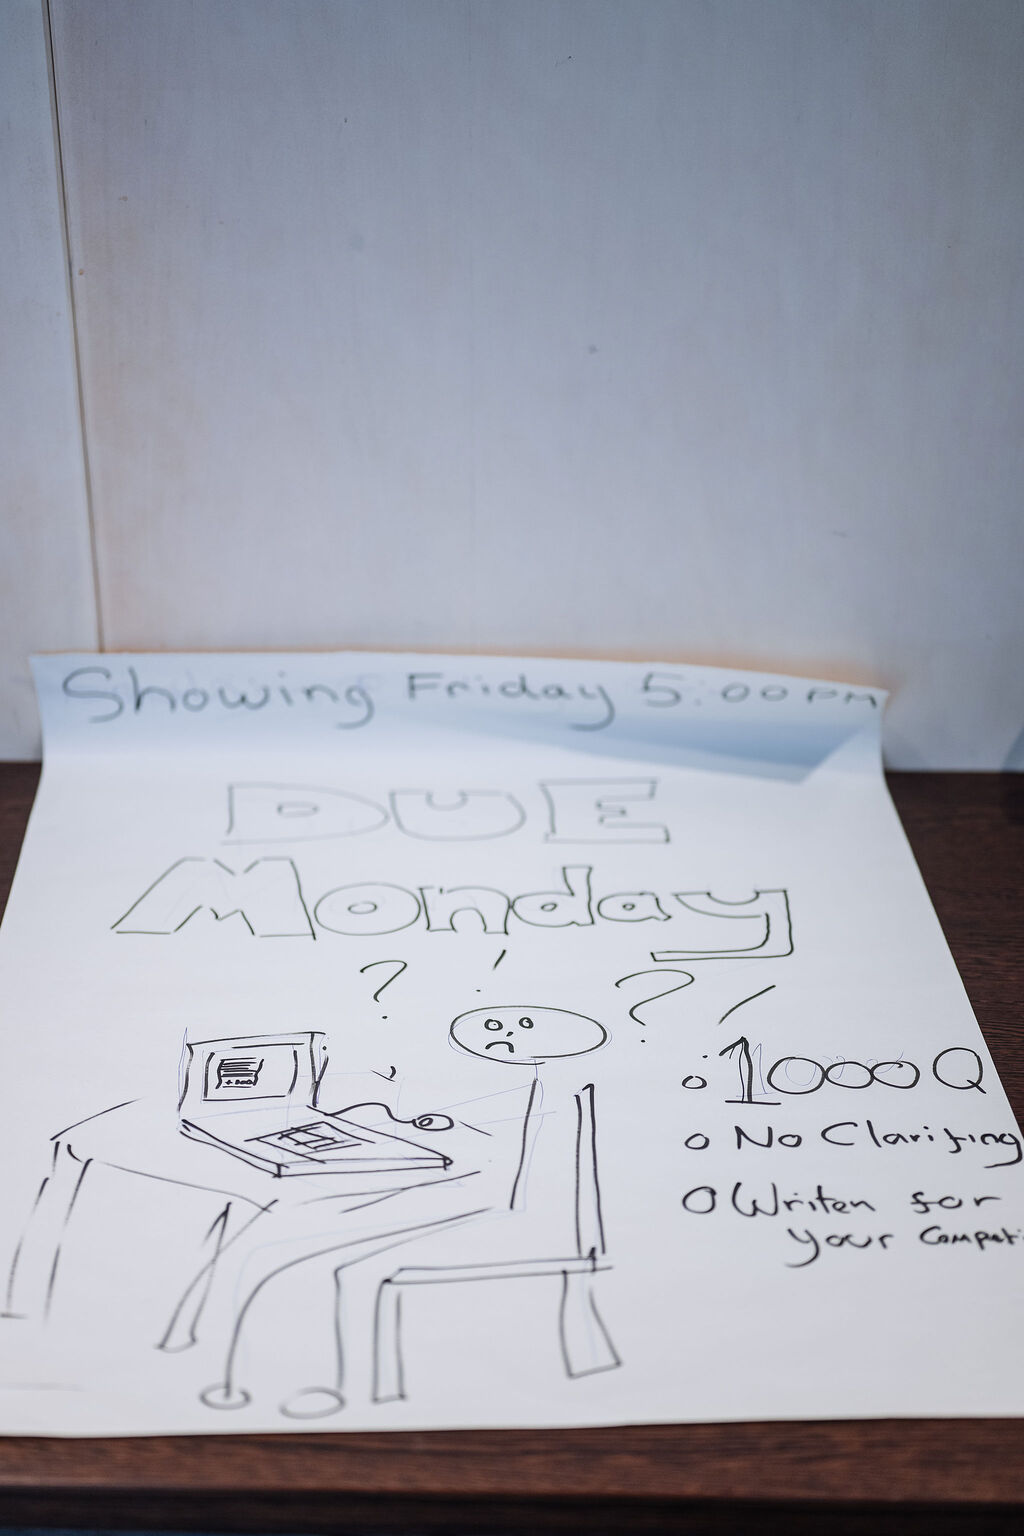 Showing Friday 5:00 PM
DUE
Monday
? !
? !
1000 Q
No Clarifing
Writen for
your